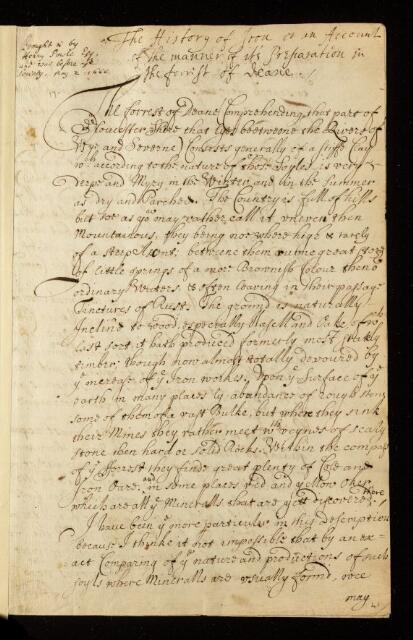 Brought in by
Henry Powle Esq.
and read before ye
Society, May 2
The History of Iron or an Account
of the manner of its Preparation in
the forrest of Deane.
The forrest of Deane Comprehending that part of
Gloucester Shire that lyes betweene the Rivers of
Wye and Severne Consists generally of a stiffe Clay
wch according to the nature of those Soyles is very
Deepe and Myry in the Winter, and in the Summer
as dry and Parched. The Country is full of hills
but not as yo may rather call it uneven then
Mountainous, they being noe where high & rarely
of a steep Ascent. betweene them runne great store
of little springs of a more Brownish Colour then
ordinary Waters & often leaving in their passage
Tinctures of Rust. The ground is naturally
Inclind to wood, especially Hasell and Oake, of wch
last sort it hath produced formerly most stately
timber, though now almost totally devoured by
ye increase of ye Iron works. Upon ye Surface of ye
earth in many places ly abundance of rough stons
some of them of a vast Bulke, but where they sink
their Mines they rather meet wth veynes of scaly
stone then hard or solid Rocks. Within the compass
of ye fforrest they finde great plenty of Cole and
Iron Oare, and in some places red and yellow Oker
which are all ye Mineralls that are yett discovered there
I have been ye more particular in this description
because I thinke it not impossible that by an ex-
act Comparing of ye nature and productions of such
soyls where Mineralls are usually found, wee
may